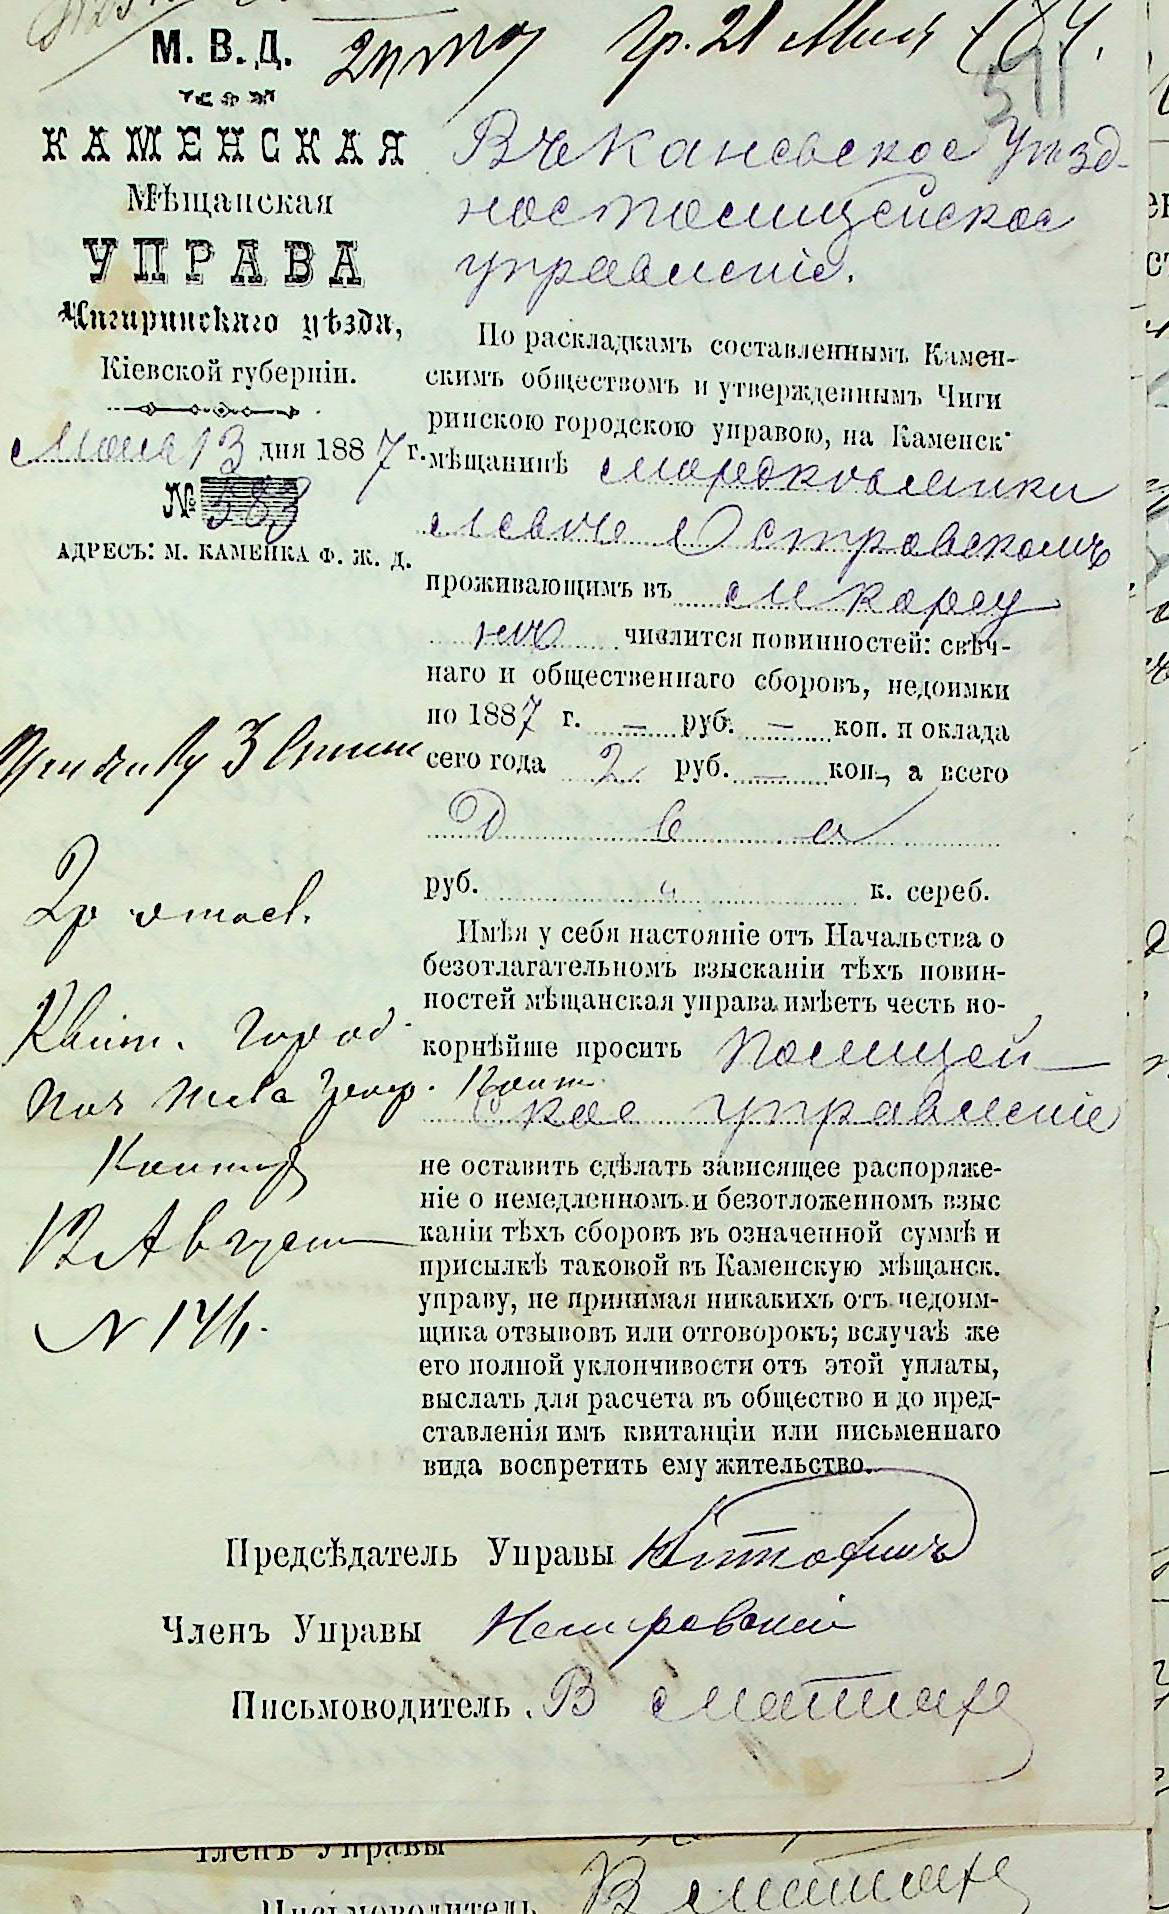 М. В. Д.
КАМЕНСКАЯ
Мѣщанская
УПРАВА
Чигиринскаго уѣзда,
Кіевской губерніи.
13 дня 1887 г.
№ 583
АДРЕСЪ: М. КАМЕНКА Ф. Ж. Д.
21 Мая
511
Въ Каневское Уѣзд-
ное Полицейское
управленіе.
По раскладкамъ составленнымъ Камен-
скимъ обществомъ и утвержденнымъ Чиги
ринскою городскою управою, на Каменск.
мѣщанинѣ Мордко
Островскомъ
проживающимъ въ м Корсу
нѣ числится повинностей: свѣч-
наго и общественнаго сборовъ, недоимки
по 1887 г. — руб. — коп. и оклада
сего года 2 руб. — коп., а всего
Два
руб. " к. сереб.
Имѣя у себя настояніе отъ Начальства о
безотлагательномъ взысканіи тѣхъ повин-
ностей мѣщанская управа имѣетъ честь по-
корнѣйше просить Полицей-
ское управленіе
не оставить сдѣлать зависящее распоряже-
ніе о немедленномъ и безотложенномъ взыс
каніи тѣхъ сборовъ въ означенной суммѣ и
присылкѣ таковой въ Каменскую мѣщанск.
управу, не принимая никакихъ отъ недоим-
щика отзывовъ или отговорокъ; вслучаѣ же
его полной уклончивости отъ этой уплаты,
выслать для расчета въ общество и до пред-
ставленія имъ квитанціи или письменнаго
вида воспретить ему жительство.
2р
Квит. Город.
12 Август
N 146.
Предсѣдатель Управы
Члень Управы Немировскій
Письмоводитель. В
Членъ Управы
Письмоводитель В